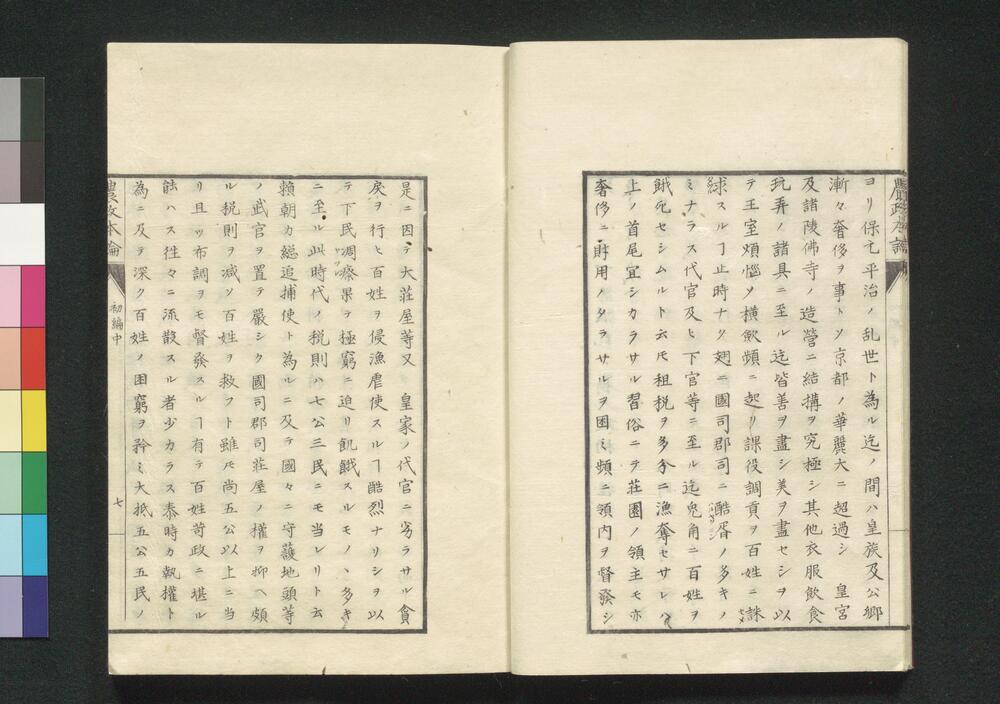 農政本論
ヨリ保元平治ノ乱世ト為ル迄ノ間ハ皇族及公卿
漸々奢侈ヲ事トシ京都ノ華麗大ニ超過シ　皇宮
及諸陵佛寺ノ造營ニ結搆ヲ究極シ其他衣服飲食
玩弄ノ諸具ニ至ル迄皆善ヲ盡シ美ヲ盡セシヲ以
テ王室煩惱シ横歛頻ニ起リ課役調貢ヲ百姓ニ誅
求スルヿ止時ナク翅ニ國司郡司ニ酷胥ノ多キノ
ミナラス代官及ヒ下官等ニ至ル迄兎角ニ百姓ヲ
餓死セシムルト云𪜈租税ヲ多分ニ漁奪セサレハ
上ノ首尾宜シカラサル習俗ニテ莊園ノ領主モ亦
奢侈ニ財用ノタラサルヲ困ミ頻ニ領内ヲ督發シ
是ニ因テ大莊屋等又　皇家ノ代官ニ劣ラサル貪
戻ヲ行ヒ百姓ヲ侵漁虐使スルヿ酷烈ナリシヲ以
テ下民凋瘵果テ極窮ニ迫リ飢餓スルモノヽ多キ
ニ至ル此時代ノ税則ハ七公三民ニモ当レリト云
頼朝カ總追捕使ト為ルニ及テ國々ニ守護地頭等
ノ武官ヲ置テ嚴シク國司郡司莊屋ノ權ヲ抑ヘ頗
ル税則ヲ减ソ百姓ヲ救フト雖𪜈尚五公以上ニ当
リ且ツ布調ヲモ督發スルヿ有テ百姓苛政ニ堪ル
能ハス往々ニ流散スル者少カラス泰時カ執權ト
為ニ及テ深ク百姓ノ困窮ヲ矜ミ大抵五公五民ノ
農政本論
初編中
七